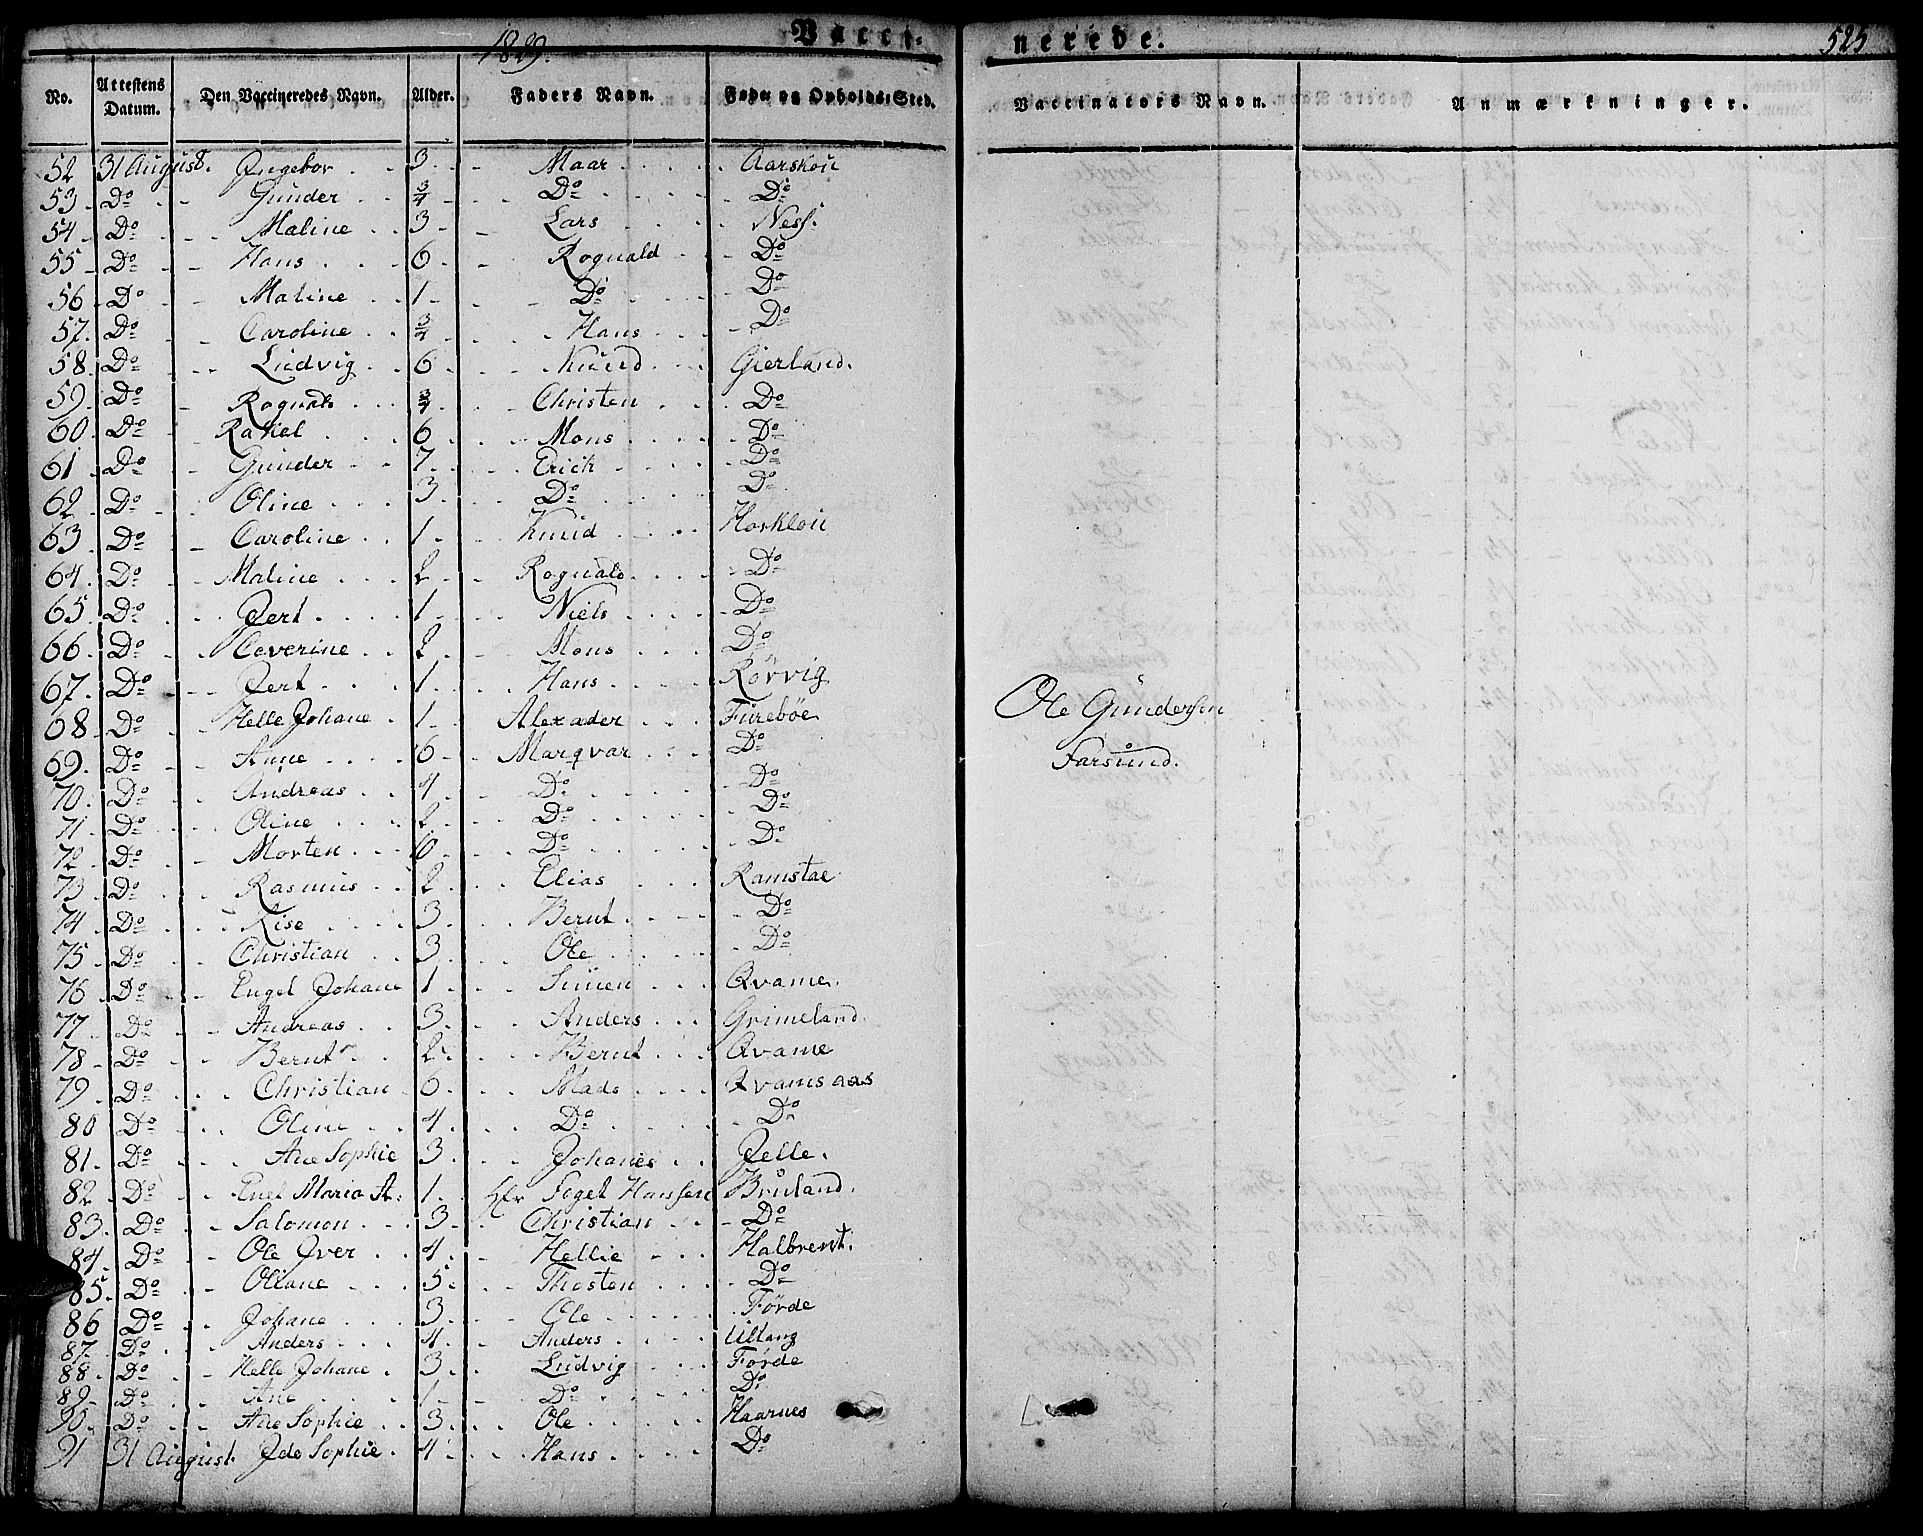 1829.
Vacci-
nerede.
525
No. Attestens Datum. Den Vaccineredes Navn. Alder. Faders Navn. Føde og Opholds-Sted. Vaccinators Navn. Anmærkninger.
52 31 August. Ingebor 3 Maar Aarskou
53 Do Gunder 3/4 Do Do
54 Do Maline 3 Lars Ness.
55 Do Hans 6 Rognald Do
56 Do Maline 1 Do Do
57 Do Caroline 3/4 Hans Do
58 Do Ludvig 6 Knud Gierland.
59 Do Rognald 3/4 Christen Do
60 Do Rakel 6 Mons Do
61 Do Gunder 7 Erich Do
62 Do Oline 3 Do Do
63 Do Caroline 1 Knud Horklou
64 Do Maline 2 Rognald Do
65 Do Gert 1 Niels Do
66 Do Ceverine 2 Mons Do
67 Do Gert 1 Hans Rørvig
68 Do Helle Johane 1 Alexader Furebøe
69 Do Anne 6 Marqvar Do
70 Do Andreas 4 Do Do
71 Do Oline 2 Do Do
72 Do Morten 6 Do Do
73 Do Rasmus 2 Elias Ramstae
74 Do Rise 3 Bernt Do
75 Do Christian 3 Ole Do
76 Do Engel Johane 1 Simen Qvame.
77 Do Andreas 3 Anders Grimeland.
78 Do Bernt 2 Bernt Qvame
79 Do Christian 6 Mads Qvamsaas
80 Do Oline 4 Do Do
81 Do Ane Sophie 3 Johanes Jelle.
82 Do Enel Maria A: 1 Hr Foget Hanssen Bruland.
83 Do Salomon 3 Christian Do
84 Do Ole Iver 4 Hellie Halbrent.
85 Do Oliane 5 Thosten Do
86 Do Johane 3 Ole Førde
87 Do Anders 4 Anders Ultang
88 Do Helle Johane 3 Ludvig Førde
89 Do Ane 1 Do Do
90 Do Ane Sophie 3 Ole Haarnes
91 31 August. Ide Sophie 4 Hans Do
Ole Gundersen
Farsund.